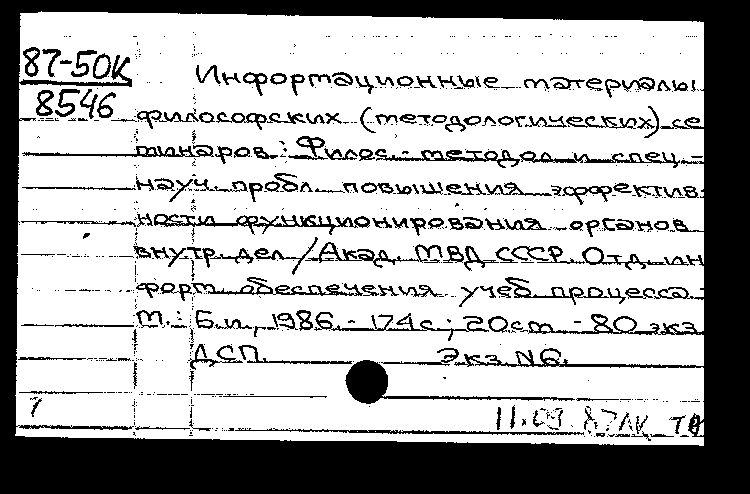 87-50К
8546
Информационные материалы
философских (методологических) се
минаров: Филос.-методол и спец.-
науч. пробл. повышения эффектив-
ности функционирования органов
внутр. дел / Акад. МВД СССР. Отд. ин
форм обеспечения учеб. процесса.-
М.: Б.и., 1986.- 174с; 20см - 80 экз
ДСП. Экз N6.
7 11.09.87